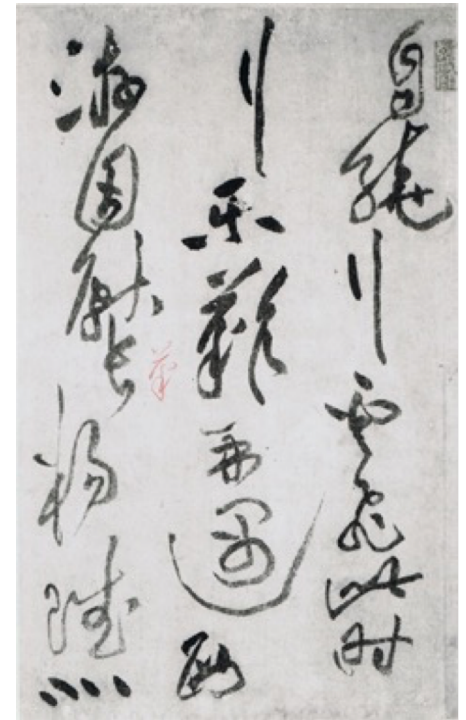 自繞行雲飛此時
行樂難再遇西
游因獻長楊賦